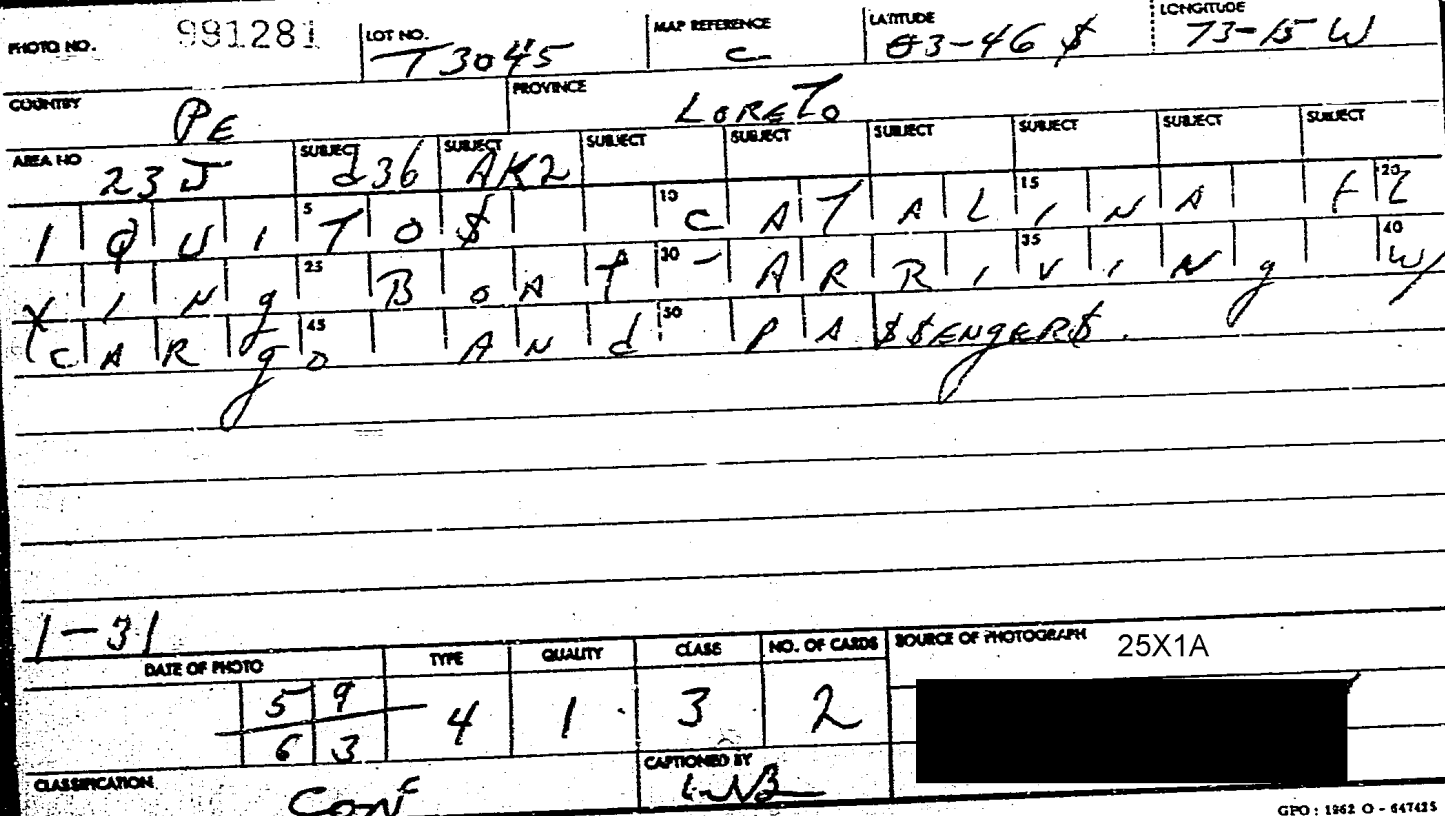 PHOTO NO. 991281 LOT NO. T3045 MAP REFERENCE C LATITUDE 03-46 $ LONGITUDE 73-15 W
COUNTRY PE PROVINCE LORETO
AREA NO 23J SUBJECT d36 SUBJECT AK2 SUBJECT SUBJECT SUBJECT SUBJECT SUBJECT SUBJECT
5 10 15 20
IQUITO$ CATALINA FL
25 30 35 40
YING BOAT - ARRIVINg W/
45 50
CARgo ANd PA$$ENgER$.
1-31
DATE OF PHOTO TYPE QUALITY CLASS NO. OF CARDS SOURCE OF PHOTOGRAPH 25X1A
59 4 1 3 2
63
CLASSIFICATION CONF CAPTIONED BY
GPO : 1962 O - 647425